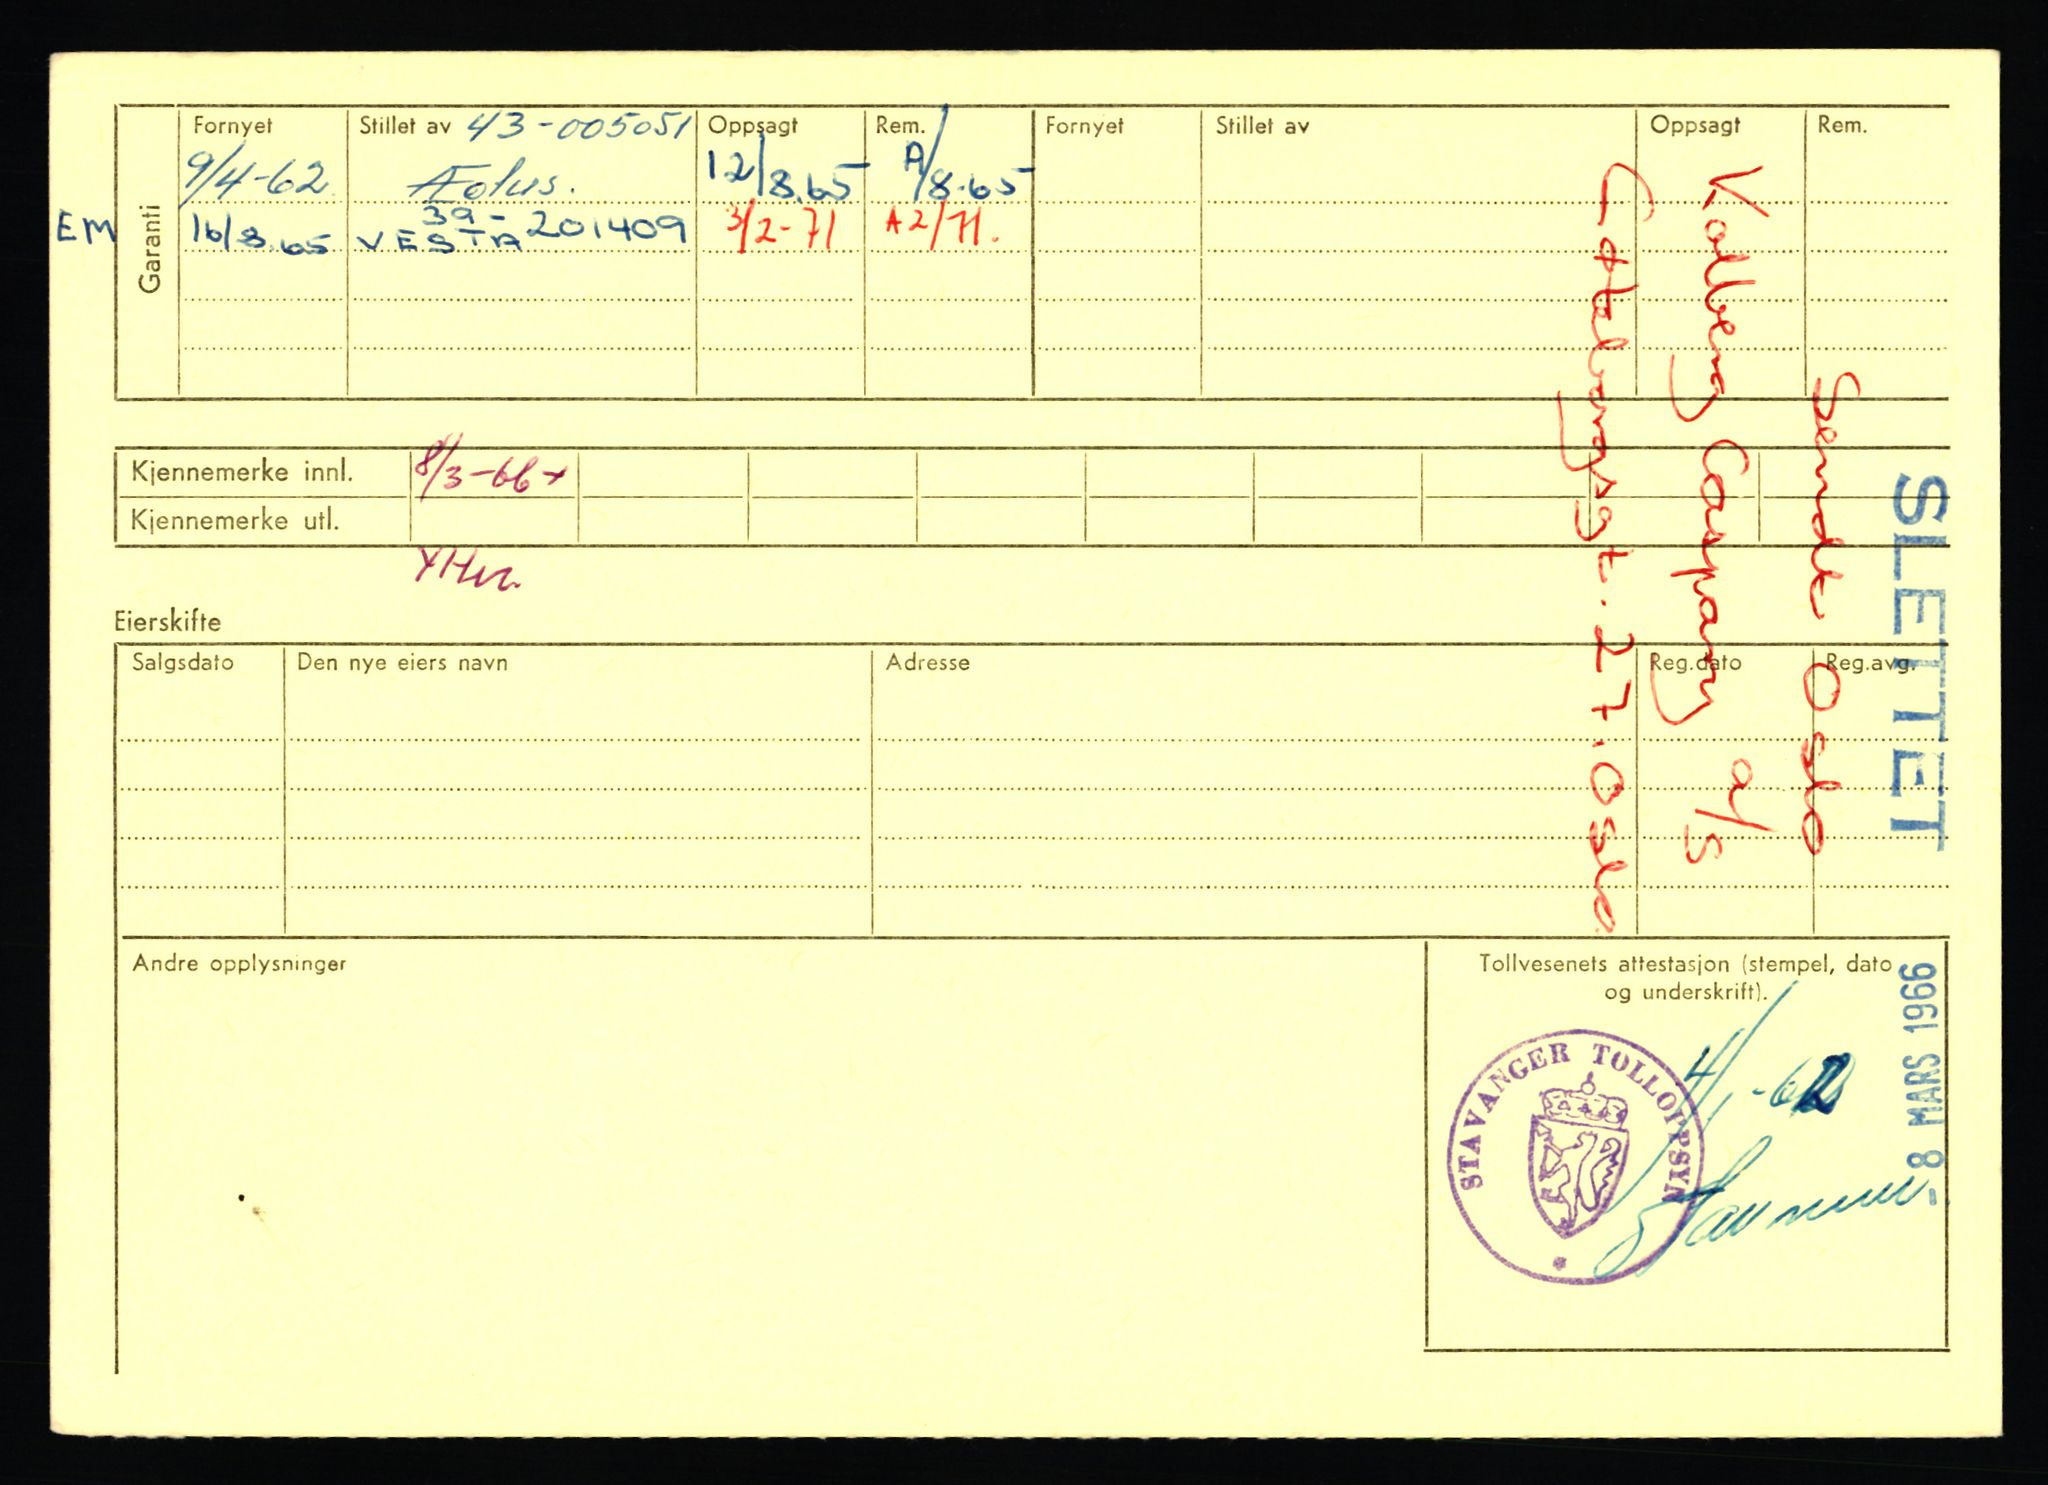 Garanti
Fornyet Stillet av 43-005051 Oppsagt Rem. Fornyet Stillet av Oppsagt Rem.
9/4-62 Æolus. 12/8.65 A/8-65
EM 16/8.65 VESTA 39-201409 3/2-71 A2/71.
Kjennemerke innl. 8/3-66 x
Kjennemerke utl.
Eierskifte
Salgsdato Den nye eiers navn Adresse Reg.dato Reg.avg.
SLETTET
Sendt Oslo
Kolberg Caspary a/s
27. Oslo
Andre opplysninger
Tollvesenets attestasjon (stempel, dato
og underskrift).
- 8 MARS 1966
STAVANGER TOLLOPPSYN